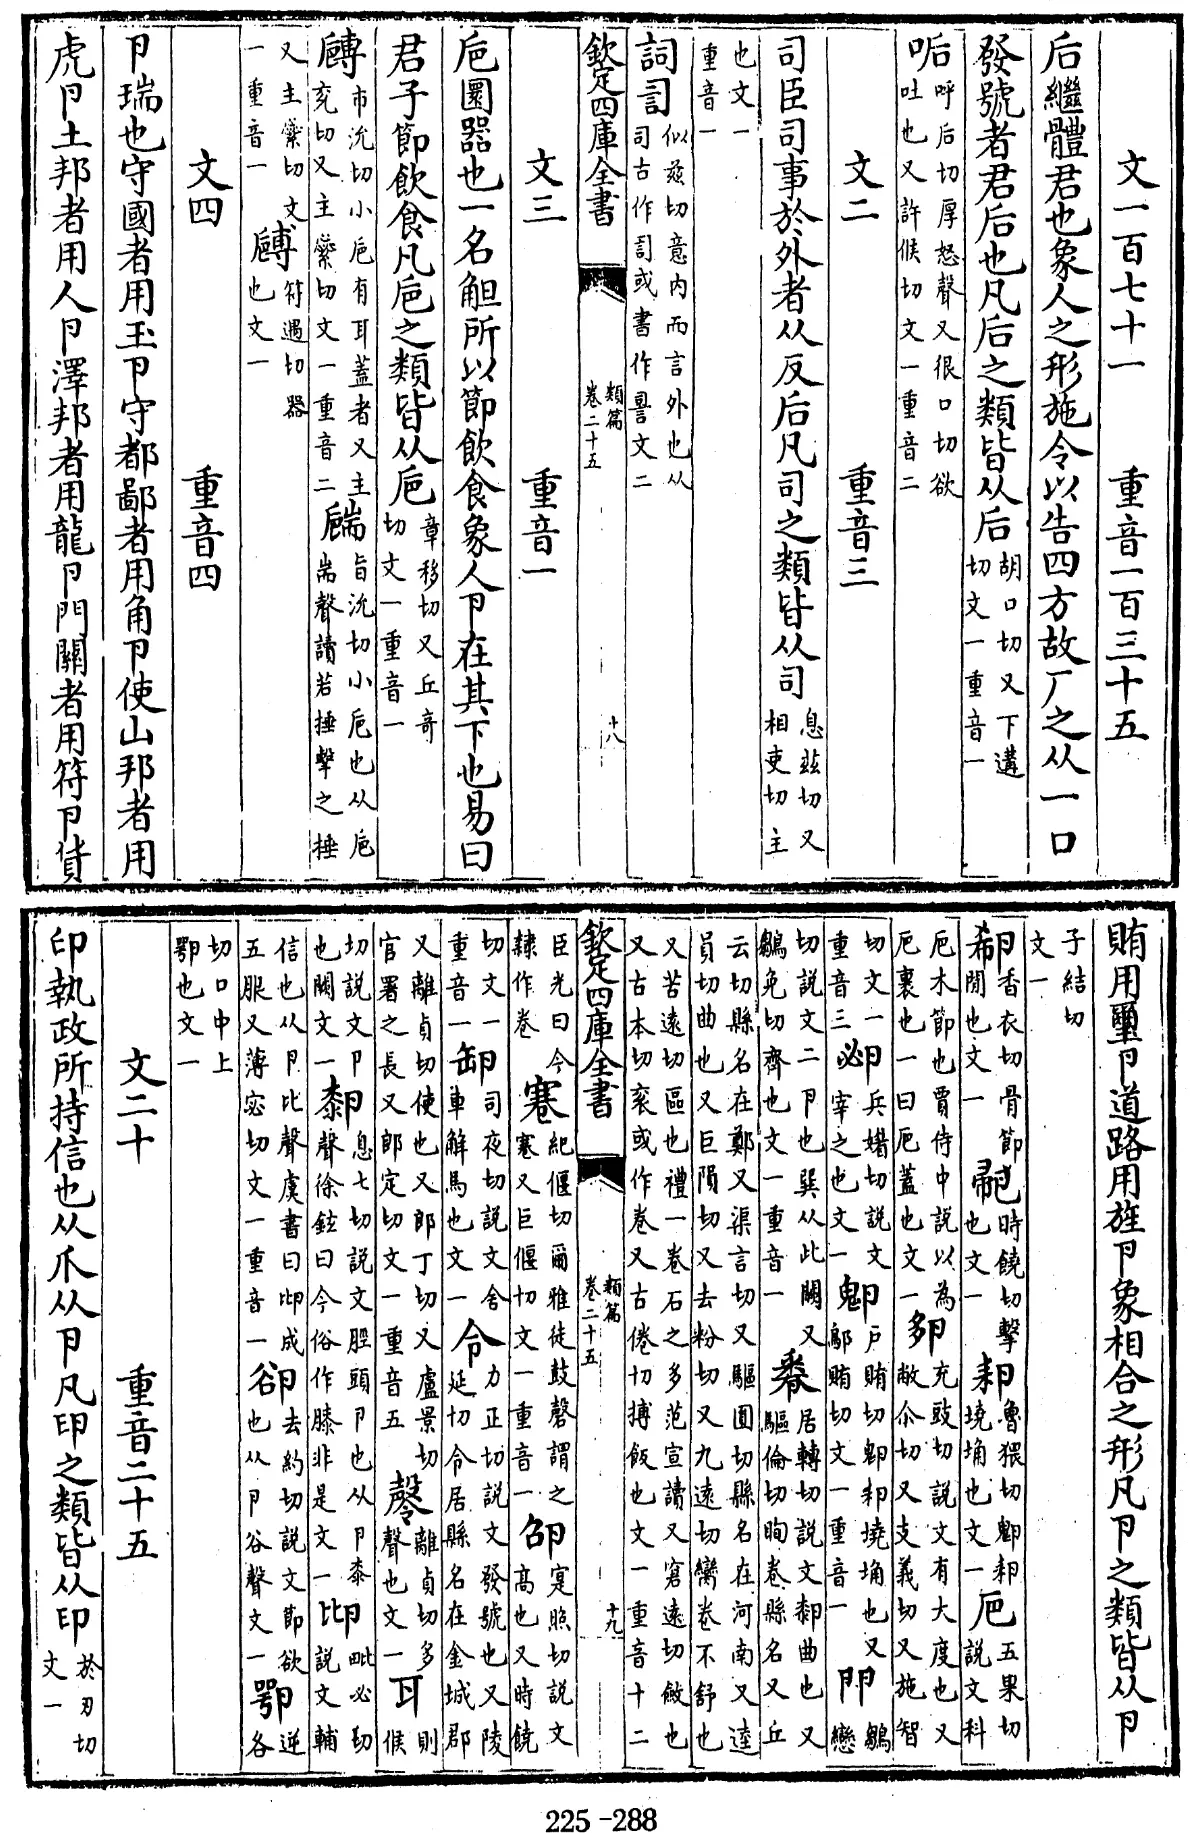 文一百七十一　重音一百三十五
后繼體君也象人之形施令以告四方故厂之从一口
發號者君后也凡后之類皆从后胡口切又下遘切文一重音一
㖃呼后切厚怒聲又很口切欲吐也又許候切文一重音二
文二　重音三
司臣司事於外者从反后凡司之類皆从司息玆切又相吏切主
也文一重音一
詞𧥝似兹切意内而言外也从司古作𧥝或書作㖸文二
欽定四庫全書　類篇卷二十五　十八
文三　重音一
巵圜器也一名觛所以節飲食象人卪在其下也易曰
君子節飲食凡巵之類皆从巵章移切又丘奇切文一重音一
䏝市沇切小巵有耳蓋者又主兖切又主縈切文一重音二𦓝旨沇切小巵也从巵耑聲讀若捶擊之捶
又主縈切文一重音一 符遇切器也文一
文四　重音四
卪瑞也守國者用玉卪守都鄙者用角卪使山邦者用
虎卪土邦者用人卪澤邦者用龍卪門關者用符卪貨
賄用璽卪道路用旌卪象相合之形凡卪之類皆从卪
子結切文一
香衣切骨節閒也文一 時饒切擊也文一 魯猥切 墝埆也文一厄五果切説文科
厄木節也賈侍中説以為厄裹也一曰厄蓋也文一𨙸充豉切説文有大度也又敝尒切又支義切又施智
切文一重音三 兵媚切説文宰之也文一 戸賄切 墝埆也又鄔賄切文一重音一 鶵戀
切説文二卪也巽从此闕又鶵免切齊也文一重音一𢍏居轉切説文 曲也又驅倫切䀏卷縣名又丘
云切縣名在鄭又渠言切又驅圓切縣名在河南又逵員切曲也又巨隕切又去粉切又九遠切臠卷不舒也
又苦遠切區也禮一卷石之多范宣讀又窘遠切斂也又古本切衮或作卷又古倦切摶飯也文一重音十二
欽定四庫全書　類篇卷二十五　十九
臣光曰今隸作卷 紀偃切爾雅徒鼓磬謂之寋又巨偃切文一重音一卲寔照切説文高也又時饒
切文一重音一卸司夜切説文舍車解馬也文一令力正切説文發號也又陵延切令居縣名在金城郡
又離貞切使也又郎丁切又盧景切官署之長又郎定切文一重音五 離貞切多聲也文一 則候
切説文卪也闕文一厀息七切説文脛頭卪也从卪桼聲徐鉉曰今俗作膝非是文一𠨒毗必切説文輔
信也从卪比聲虞書曰𠨒成五服又薄宓切文一重音一卻去約切説文節欲也从卪谷聲文一 逆各
切口中上㗁也文一
文二十　重音二十五
印執政所持信也从爪从卪凡印之類皆从印於刃切文一
225-288